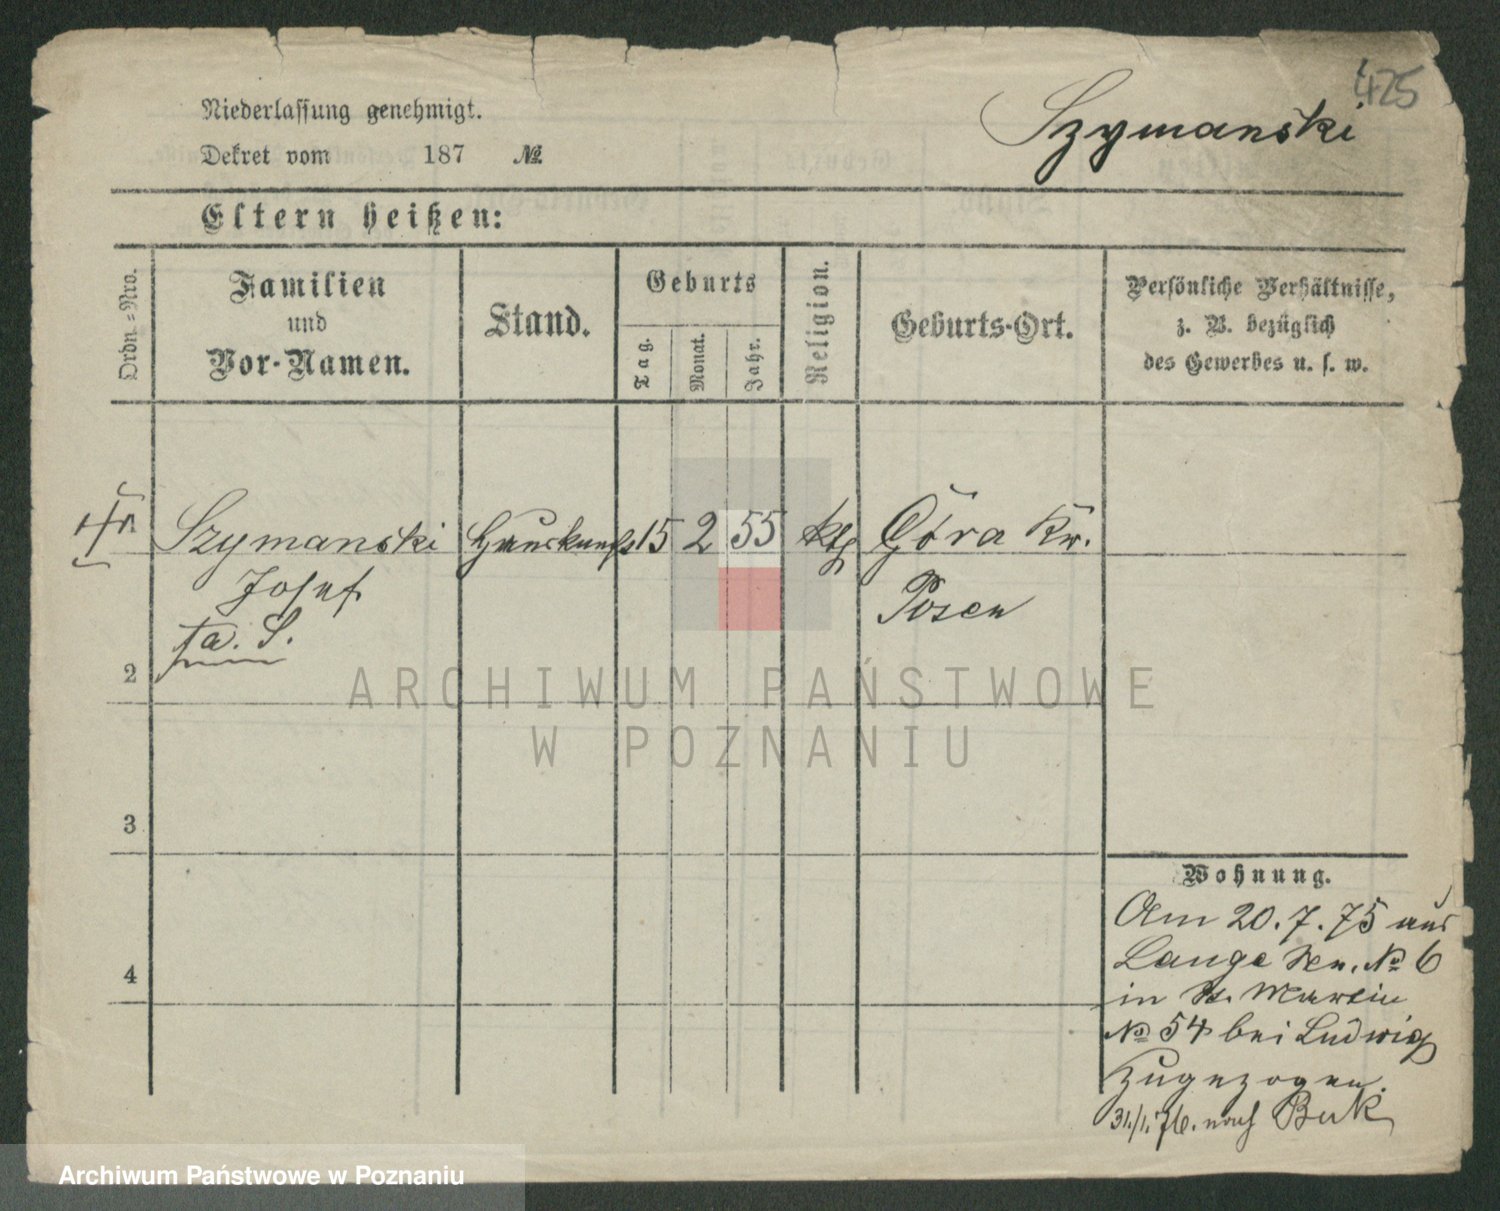 425
Szymanski
Niederlassung genehmigt.
Dekret vom 187 №
Eltern heißen:
Ordn.-Nro.
Familien
und
Vor-Namen.
Stand.
Geburts
Tag.
Monat.
Jahr.
Religion.
Geburts-Ort.
Persönliche Verhältnisse,
z. B. bezüglich
des Gewerbes u. s. w.
Szymanski 15 2 55 kth Góra Kr.
Josef Posen
fa. S.
2
3
4
Wohnung.
Am 20.7.75 aus
Lange № 6
in St. Martin
№ 54 bei Ludwig
zugezogen.
31./1.76. nach Buk
ARCHIWUM PAŃSTWOWE
W POZNANIU
Archiwum Państwowe w Poznaniu